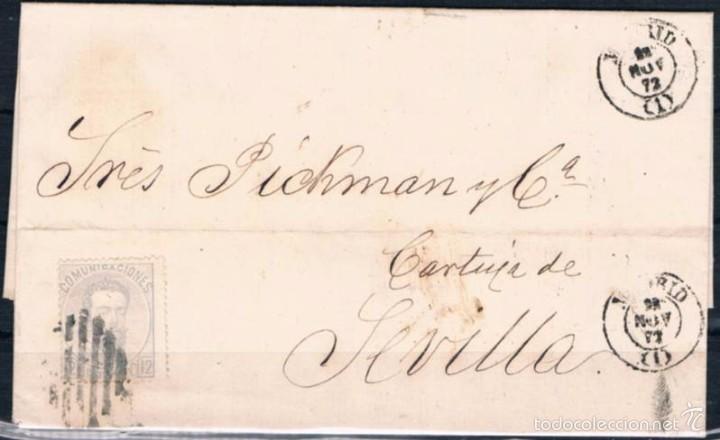 MADRID
28
NOV
72
(1)
Srés Pickman y Cª
Cartuja de
Sevilla
COMUNICACIONES
12
MADRID
28
NOV
72
(1)
todocoleccion.net